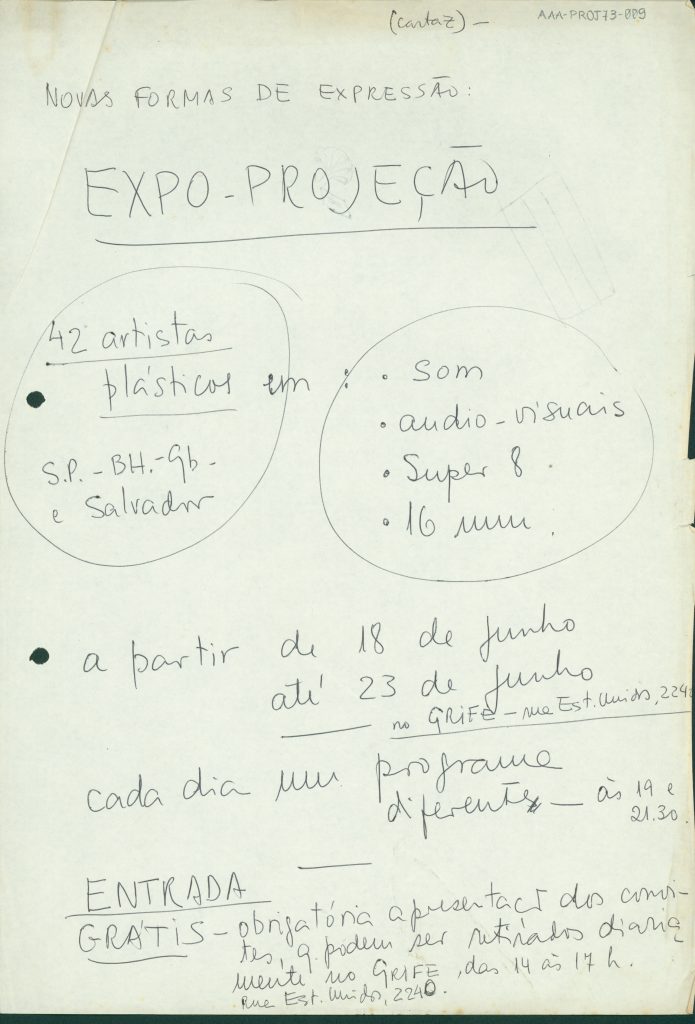 (cartaz) -
AAA-PROJ73-009
NOVAS FORMAS DE EXPRESSÃO:
EXPO-PROJEÇÃO
42 artistas
plásticos em :
S.P. - BH. - Gb -
e Salvador
• som
• audio-visuais
• Super 8.
• 16 mm.
a partir de 18 de junho
até 23 de junho
no GRIFE - rua Est. Unidos, 2240
cada dia um programa
diferente - às 19 e
21.30.
ENTRADA
GRÁTIS - obrigatória apresentaçã dos convi-
tes, q podem ser retirados diaria-
mente no GRIFE, das 14 às 17 h.
rua Est. Unidos, 2240.